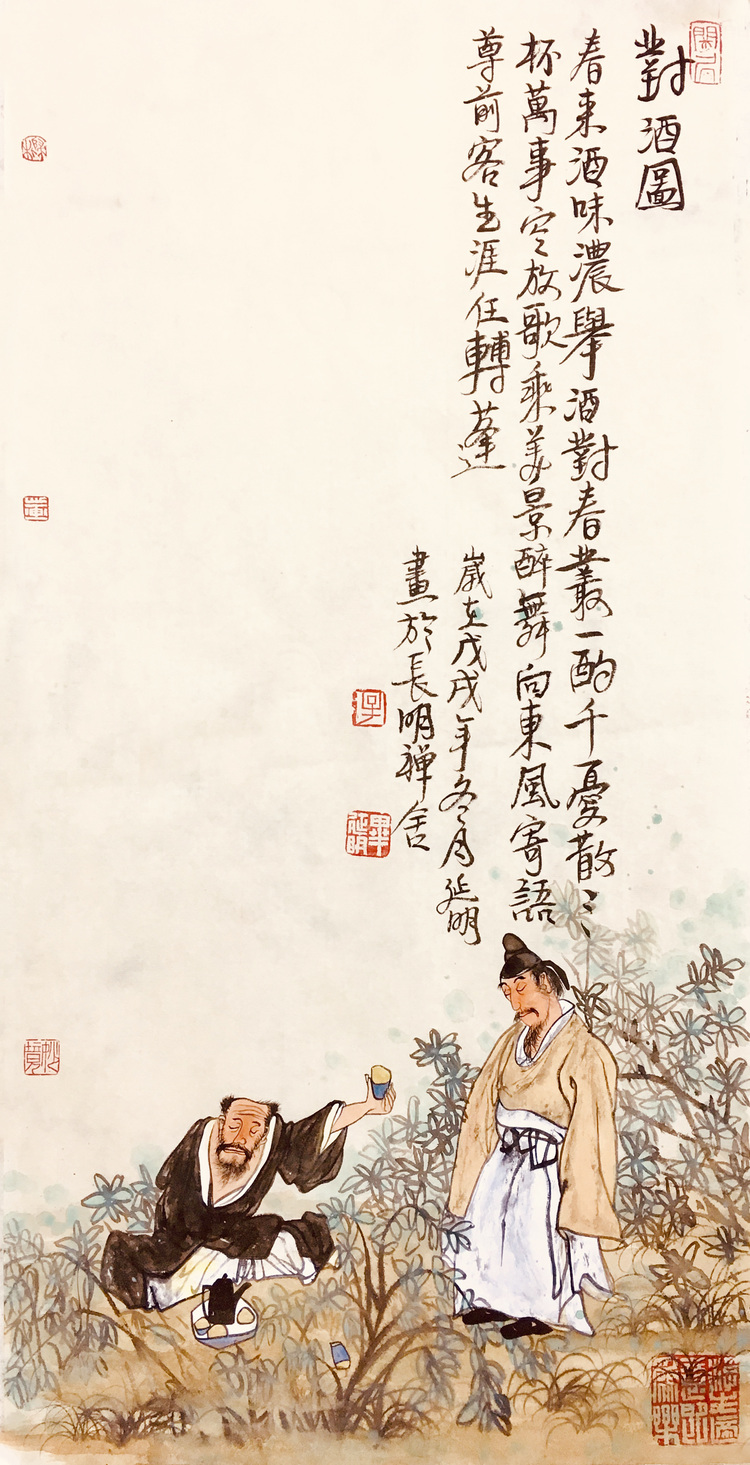 對酒圖
春來酒味濃舉酒對春叢一酌千憂散三
杯萬事空放歌乘美景醉舞向東風寄語
尊前客生涯任轉蓬
歲在戊戌年冬月延明
畫於長明禪舍
畢延明